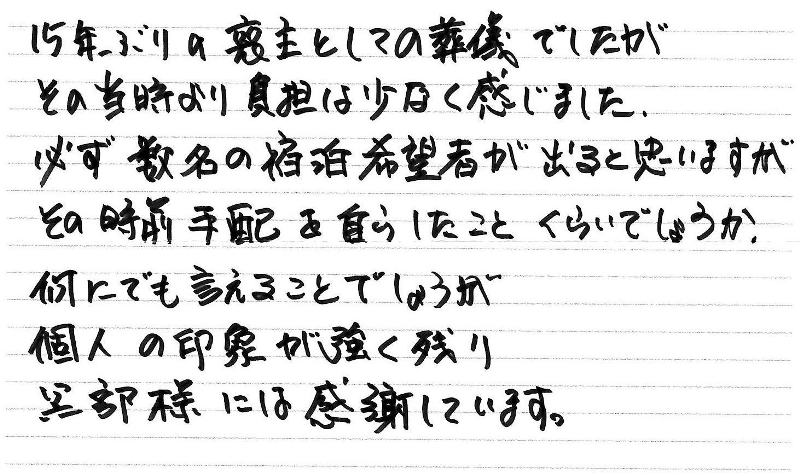 15年ぶりの喪主としての葬儀でしたが
その当時より負担は少なく感じました.
必ず数名の宿泊希望者が出ると思いますが
その時前手配を自らしたことくらいでしょうか.
何にでも言えることでしょうが
個人の印象が強く残り
部様には感謝しています。